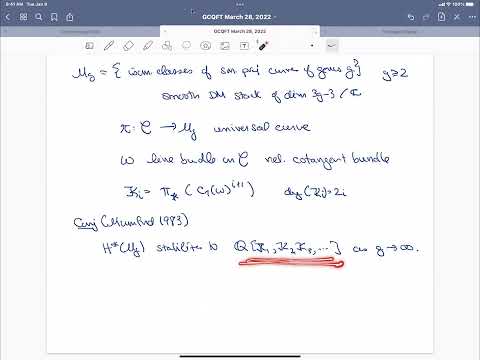 8:41 AM Tue Jan 9
GCQFT March 28, 2022
GCQFT March 28, 2022
M_g = { isom classes of sm proj curve of genus g } g ≥ 2
smooth DM stack of dim 3g-3 / C
π: C → M_g universal curve
ω line bundle on C rel. cotangent bundle
K_i = π_* ( c_1(ω)^{i+1} ) deg(K_i) = 2i
Conj (Mumford 1983)
H*(M_g) stabilizes to Q[K_1, K_2, K_3, ...] as g → ∞.